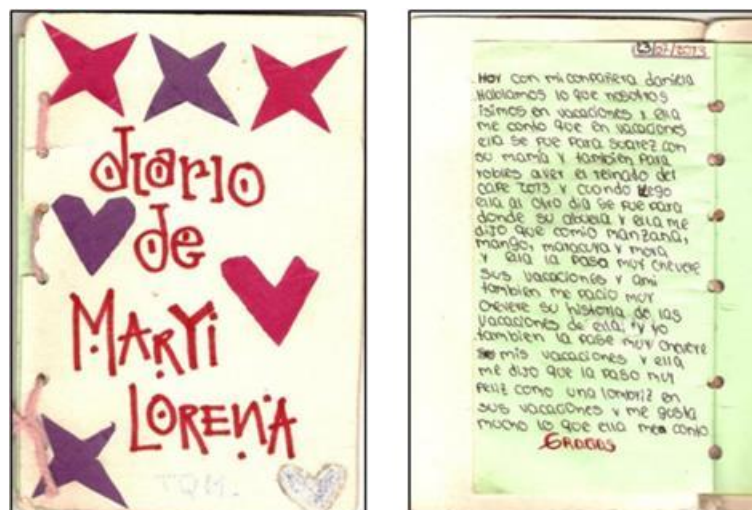 diario
de
MARYI
LORENA
TQM.
23/07/2013
Hoy con mi conpañera daniela
Hablamos lo que nosotros
isimos en vacaciones y ella
me conto que en vacaciones
ella se fue para suarez con
su mamá y tambien para
robles aver el reinado del
cafe 2013 y cuondo llego
ella al otro dia se fue para
donde su abuela y ella me
dijo que comio manzana,
mango, maracuya y mora
y ella la paso muy chevere
sus vacaciones y ami
tambien me pacio muy
chevere su historia de las
vacaciones de ella: y yo
tambien la pase muy chevere
mis vacaciones y ella
me dijo que la paso muy
feliz como una lombriz en
sus vacaciones y me gusta
mucho lo que ella me conto
GRACIAS